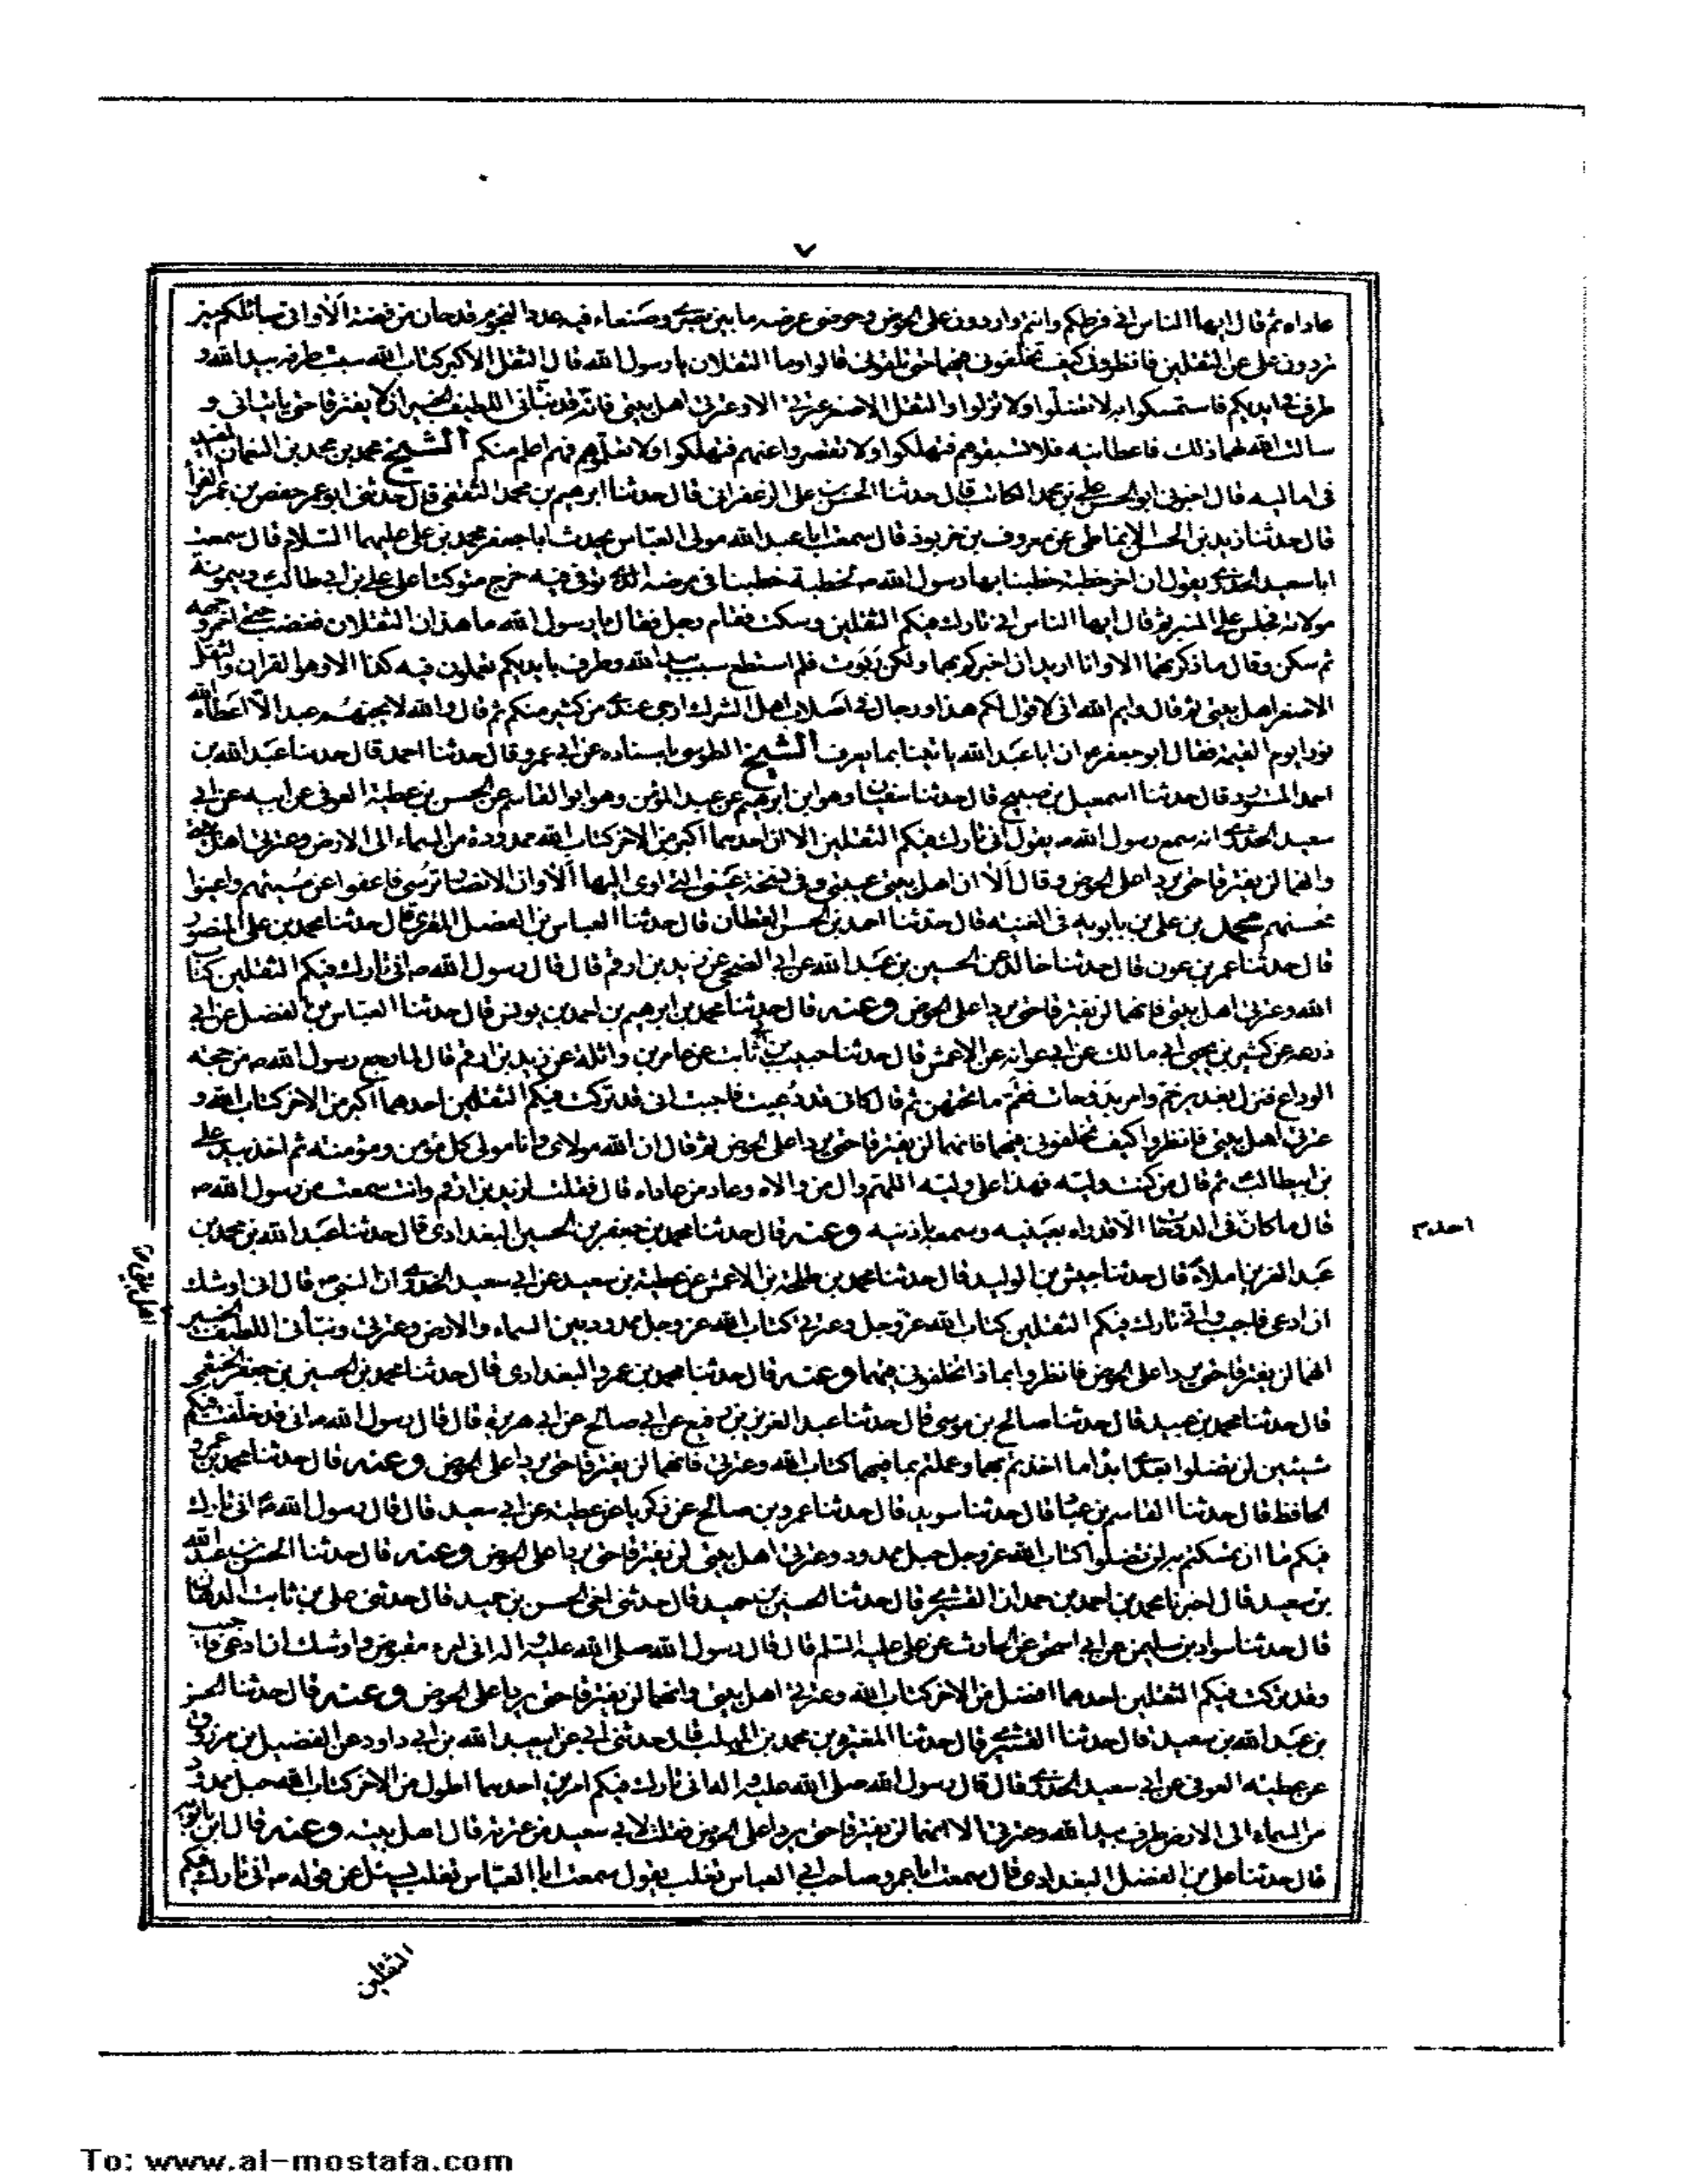 ٧
عاداه ثم قال ايها الناس انى فرطكم وانتم واردون على الحوض وحوضى عرضه ما بين بصرى وصنعاء فيه عدد النجوم قدحان من فضة الا وانى سائلكم حين
تردون على عن الثقلين فانظروا كيف تخلفونى فيهما حتى تلقونى قالوا وما الثقلان يا رسول الله قال الثقل الاكبر كتاب الله سبب طرفه بيد الله و
طرف فى ايديكم فاستمسكوا به لا تضلوا ولا تزلوا والثقل الاصغر عترتى الا وعترتى اهل بيتى فانه قد نبأنى اللطيف الخبير ان لا يفترقا حتى ياتيانى و
سالت الله لهما ذلك فاعطانيه فلا تسبقوهم فتهلكوا ولا تقصروا عنهم فتهلكوا ولا تعلموهم فهم اعلم منكم الشيخ محمد بن محمد بن النعمان المفيد
فى اماليه قال اخبرنى ابو الحسن على بن محمد الكاتب قال حدثنا الحسن بن على الزعفرانى قال حدثنا ابرهيم بن محمد الثقفى قال حدثنى ابو عمر حفص بن عمر الفرا
قال حدثنا زيد بن الحسن الانماطى عن معروف بن خربوذ قال سمعت ابا عبد الله مولى العباس يحدث ابا جعفر محمد بن على عليهما السلام قال سمعت
ابا سعيد الخدرى يقول ان اخر خطبة خطبنا بها رسول الله ص لخطبة خطبنا فى مرضه الذى توفى فيه خرج متوكئا على على بن ابى طالب وميمونة
مولاته فجلس على المنبر ثم قال ايها الناس انى تارك فيكم الثقلين وسكت فقام رجل فقال يا رسول الله ما هذان الثقلان فغضب حتى احمر وجهه
ثم سكن وقال ما ذكرتهما الا وانا اريد ان اخبركم بهما ولكن ربوت فلم استطع سبب بيد الله وطرف بايديكم تعملون فيه كذا الا وهو القران والثقل
الاصغر اهل بيتى ثم قال وايم الله انى لاقول لكم هذا ورجال فى اصلاب اهل الشرك ارجى عندى من كثير منكم ثم قال والله لا يحبهم عبد الا اعطاه الله
نورا يوم القيمة فقال ابو جعفر ع ان ابا عبد الله ياتينا بما يعرف الشيخ الطوسى باسناده عن ابى عمرو قال حدثنا احمد قال حدثنا عبد الله بن
احمد المستورد قال حدثنا اسمعيل بن صبيح قال حدثنا سفيان وهو ابن ابرهيم عن عبد المؤمن وهو ابو القاسم عن الحسن بن عطية العوفى عن ابيه عن ابى
سعيد الخدرى انه سمع رسول الله ص يقول انى تارك فيكم الثقلين الا ان احدهما اكبر من الاخر كتاب الله ممدودة من السماء الى الارض وعترتى اهل بيتى
وانهما لن يفترقا حتى يردا على الحوض وقال ألا ان اهل بيتى عيبتى التى اوى اليها الا وان الانصار كرشى فاعفوا عن مسيئهم واعينوا
محسنهم محمد بن على بن بابويه فى الغيبة قال حدثنا احمد بن الحسن القطان قال حدثنا العباس بن الفضل المقرى قال حدثنا محمد بن على المنصور
قال حدثنا عمر بن عون قال حدثنا خالد عن الحسين بن عبد الله عن ابى الضحى عن زيد بن ارقم قال قال رسول الله ص انى تارك فيكم الثقلين كتاب
الله وعترتى اهل بيتى فانهما لن يفترقا حتى يردا على الحوض وعنه قال حدثنا محمد بن ابرهيم بن احمد بن يونس قال حدثنا العباس بن الفضل عن ابى
ذرعه عن كثير بن يحيى ابى مالك عن ابى عوانه عن الاعمش قال حدثنا حبيب بن ابى ثابت عن عامر بن واثلة عن زيد بن ارقم قال لما رجع رسول الله ص من حجة
الوداع فنزل بغدير خم وامر بدوحات فقم ما تحتهن ثم قال كانى قد دعيت فاجبت انى قد تركت فيكم الثقلين احدهما اكبر من الاخر كتاب الله و
عترتى اهل بيتى فانظروا كيف تخلفونى فيهما فانهما لن يفترقا حتى يردا على الحوض ثم قال ان الله مولاى وانا مولى كل مؤمن ومؤمنة ثم اخذ بيد على
بن ابيطالب ثم قال من كنت وليه فهذا على وليه اللهم وال من والاه وعاد من عاداه قال فقلت لزيد بن ارقم وانت سمعت من رسول الله ص
قال ما كان فى الدوحات الا قد راه بعينيه وسمعه باذنيه وعنه قال حدثنا محمد بن جعفر بن الحسين البغدادى قال حدثنا عبد الله بن محمد بن
عبد العزيز املاء قال حدثنا بشر بن الوليد قال حدثنا محمد بن طلحة بن الاعمش عن عطية بن سعيد عن ابى سعيد الخدرى ان النبى ص قال انى اوشك
ان ادعى فاجيب وانى تارك فيكم الثقلين كتاب الله عز وجل وعترتى كتاب الله عز وجل ممدود بين السماء والارض وعترتى ونبأنى اللطيف الخبير
انهما لن يفترقا حتى يردا على الحوض فانظروا بماذا تخلفونى فيهما وعنه قال حدثنا محمد بن عمرو البغدادى قال حدثنا محمد بن الحسين بن جعفر الخثعمى
قال حدثنا محمد بن عبيد قال حدثنا صالح بن موسى قال حدثنا عبد العزيز بن رفيع عن ابى صالح عن ابى هريرة قال قال رسول الله ص انى قد خلفت فيكم
شيئين لن تضلوا بعدى ابدا ما اخذتم بهما وعملتم بما فيهما كتاب الله وعترتى فانهما لن يفترقا حتى يردا على الحوض وعنه قال حدثنا محمد بن عمرو
الحافظ قال حدثنا القاسم بن عباد قال حدثنا سويد قال حدثنا عمرو بن صالح عن زكريا عن عطية عن ابى سعيد قال قال رسول الله ص انى تارك
فيكم ما ان تمسكتم به لن تضلوا كتاب الله عز وجل حبل ممدود وعترتى اهل بيتى لن يفترقا حتى يردا على الحوض وعنه قال حدثنا الحسن بن عبد الله
بن سعيد قال اخبرنا محمد بن احمد بن حمدان القشيرى قال حدثنا الحسين بن حميد قال حدثنى اخى الحسن بن حميد قال حدثنى على بن ثابت الدهان
قال حدثنا سواد بن سليمن عن ابى اسحق عن الحارث عن على عليه السلم قال قال رسول الله صلى الله عليه واله انى امرء مقبوض واوشك ان ادعى فاجيب
وقد تركت فيكم الثقلين احدهما افضل من الاخر كتاب الله وعترتى اهل بيتى وانهما لن يفترقا حتى يردا على الحوض وعنه قال حدثنا الحسن
بن عبد الله بن سعيد قال حدثنا القشيرى قال حدثنا المغيرة بن محمد بن المهلب قال حدثنى ابى عن عبد الله بن ابى داود عن الفضيل بن مرزوق
عن عطية العوفى عن ابى سعيد الخدرى قال قال رسول الله صلى الله عليه واله انى تارك فيكم امرين احدهما اطول من الاخر كتاب الله حبل ممدود
من السماء الى الارض طرف بيد الله وعترتى الا انهما لن يفترقا حتى يردا على الحوض فقلت لابى سعيد من عترته قال اهل بيته وعنه قال ابن بابويه
قال حدثنا على بن الفضل البغدادى قال سمعت ابا عمرو صاحب ابى العباس تغلب يقول سمعت ابا العباس تغلب يسئل عن قوله ص انى تارك فيكم
الثقلين
To: www.al-mostafa.com